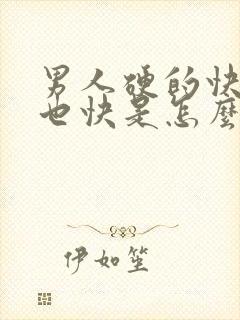 男人硬的快
也快是怎麼
伊如笙